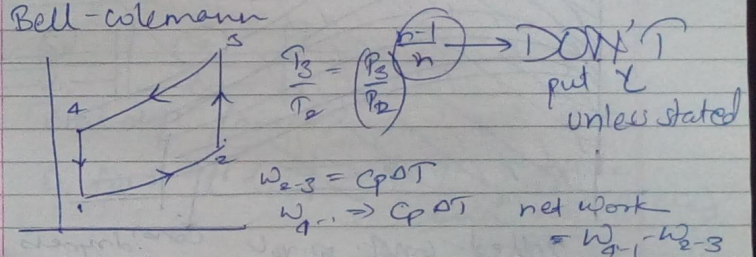 Bell-colemann
3
4
2
1
T3/T2 = (P3/P2)^(n-1/n) → DON'T
put γ
unless stated
W2-3 = CpΔT
W4-1 ⇒ CpΔT
net work
= W4-1 - W2-3